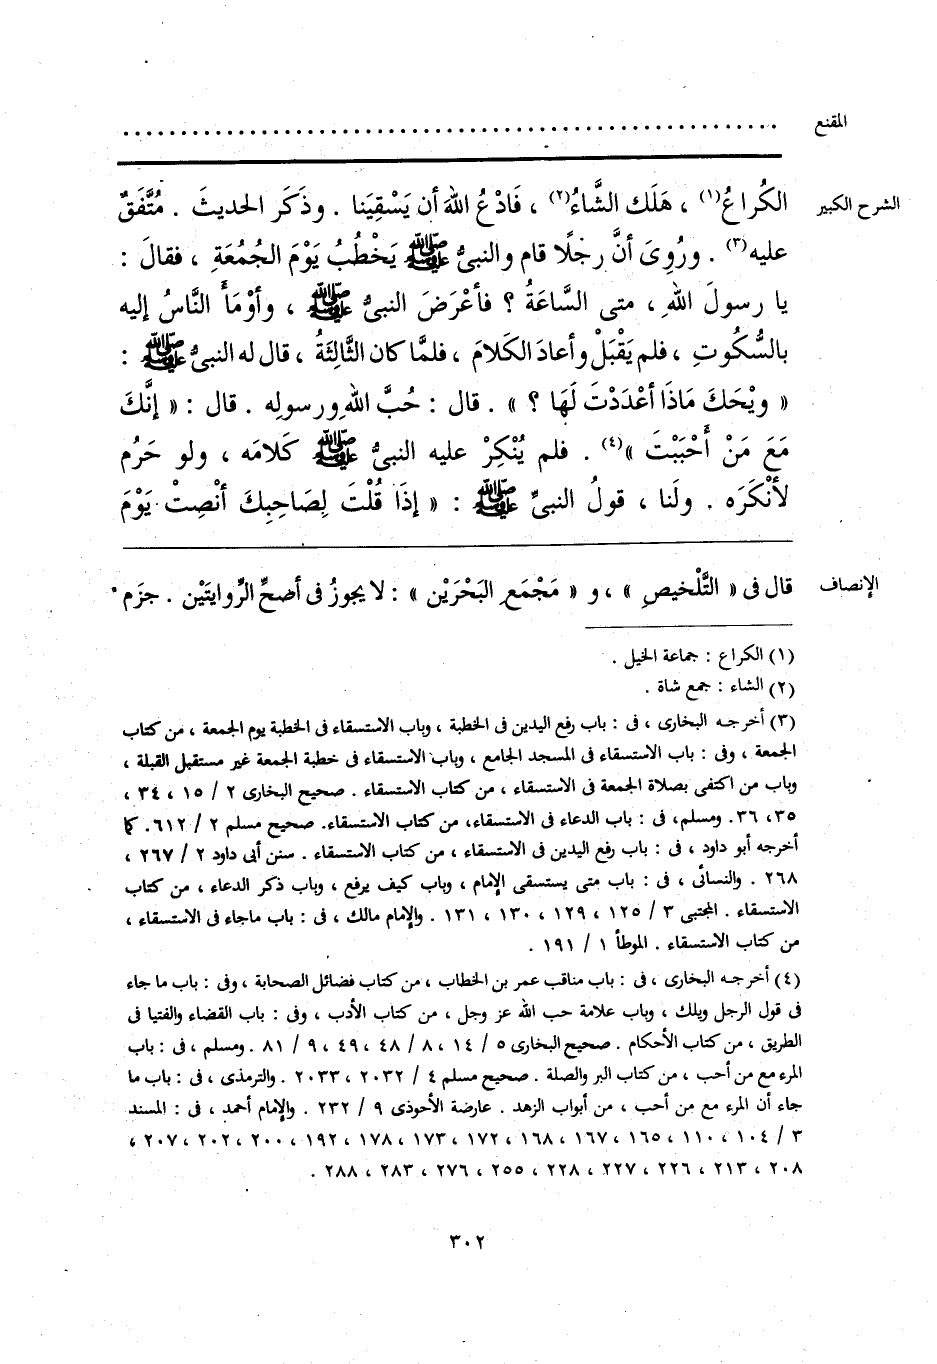 المقنع ........................................................
الشرح الكبير الكُراعُ(١) ، هَلَك الشَّاءُ(٢) ، فَادْعُ اللهَ أن يَسْقِيَنا . وذَكَر الحديثَ . مُتَّفَقٌ
عليه(٣) . ورُوِىَ أنَّ رجلًا قام والنبىُّ ﷺ يَخْطُبُ يَوْمَ الجُمُعَةِ ، فقالَ :
يا رسولَ اللهِ ، متى السَّاعَةُ ؟ فأعْرَضَ النبىُّ ﷺ ، وأوْمَأَ النَّاسُ إليه
بالسُّكُوتِ ، فلم يَقْبَلْ وأعادَ الكَلامَ ، فلمَّا كان الثَّالِثَةُ ، قال له النبىُّ ﷺ :
« ويْحَكَ مَاذَا أعْدَدْتَ لَهَا ؟ » . قال : حُبَّ اللهِ ورسولِه . قال : « إنَّكَ
مَعَ مَنْ أَحْبَبْتَ »(٤) . فلم يُنْكِرْ عليه النبىُّ ﷺ كَلامَه ، ولو حَرُم
لأنْكَرَه . ولَنا ، قولُ النبىِّ ﷺ : « إذَا قُلْتَ لِصَاحِبِكَ أنْصِتْ يَوْمَ
الإنصاف قال فى « التَّلْخيصِ » ، و « مَجْمَعِ البَحْرَيْن » : لا يجوزُ فى أصَحِّ الرِّوايتَيْن . جزَم
(١) الكراع : جماعة الخيل .
(٢) الشاء : جمع شاة .
(٣) أخرجه البخارى ، فى : باب رفع اليدين فى الخطبة ، وباب الاستسقاء فى الخطبة يوم الجمعة ، من كتاب
الجمعة ، وفى : باب الاستسقاء فى المسجد الجامع ، وباب الاستسقاء فى خطبة الجمعة غير مستقبل القبلة ،
وباب من اكتفى بصلاة الجمعة فى الاستسقاء ، من كتاب الاستسقاء . صحيح البخارى ٢ / ١٥ ، ٣٤ ،
٣٥، ٣٦. ومسلم، فى : باب الدعاء فى الاستسقاء، من كتاب الاستسقاء. صحيح مسلم ٢ / ٦١٢. كما
أخرجه أبو داود ، فى : باب رفع اليدين فى الاستسقاء ، من كتاب الاستسقاء . سنن أبى داود ٢ / ٢٦٧ ،
٢٦٨ . والنسائى ، فى : باب متى يستسقى الإمام ، وباب كيف يرفع ، وباب ذكر الدعاء ، من كتاب
الاستسقاء . المجتبى ٣ / ١٢٥ ، ١٢٩ ، ١٣٠ ، ١٣١ . والإمام مالك ، فى : باب ماجاء فى الاستسقاء ،
من كتاب الاستسقاء . الموطأ ١ / ١٩١ .
(٤) أخرجه البخارى ، فى : باب مناقب عمر بن الخطاب ، من كتاب فضائل الصحابة ، وفى : باب ما جاء
فى قول الرجل ويلك ، وباب علامة حب الله عز وجل ، من كتاب الأدب ، وفى : باب القضاء والفتيا فى
الطريق ، من كتاب الأحكام . صحيح البخارى ٥ / ١٤ ، ٨ / ٤٨ ، ٤٩ ، ٩ / ٨١ . ومسلم ، فى : باب
المرء مع من أحب ، من كتاب البر والصلة . صحيح مسلم ٤ / ٢٠٣٢ ، ٢٠٣٣ . والترمذى ، فى : باب ما
جاء أن المرء مع من أحب ، من أبواب الزهد . عارضة الأحوذى ٩ / ٢٣٢ . والإمام أحمد ، فى : المسند
٣ / ١٠٤ ، ١١٠ ، ١٦٥ ، ١٦٧ ، ١٦٨ ، ١٧٢ ، ١٧٣ ، ١٧٨ ، ١٩٢ ، ٢٠٠ ، ٢٠٢ ، ٢٠٧ ،
٢٠٨ ، ٢١٣ ، ٢٢٦ ، ٢٢٧ ، ٢٢٨ ، ٢٥٥ ، ٢٧٦ ، ٢٨٣ ، ٢٨٨ .
٣٠٢